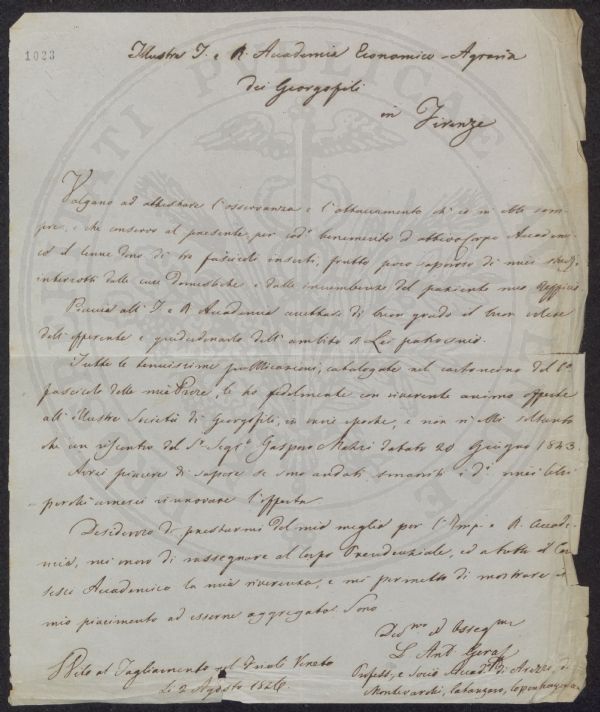 1023
Illustre I. e R. Accademia Economico-Agraria
dei Georgofili
in Firenze
Valgano ad attestare l'osservanza e l'attaccamento ch'io m'ebbi sem-
pre, e che conservo al presente, per benemerito Accademi-
co il tenue dono di tre fascicoli inserti, frutto poco saporoso di miei studj
interrotti dalle cure domestiche e dalle incumbenze del paziente mio Uffizio
Piaccia all'I. e R. Accademia accettare di buon grado il buon volere
dell'offerente e giudicandolo dell'ambito di Lei patrocinio.
Tutte le tenuissime pubblicazioni, catalogate nel cartoncino del
fascicolo delle mie Prose, le ho fedelmente con riverente animo offerte
all'illustre Società di Georgofili, in varie epoche, e non n'ebbi soltanto
che un riscontro del Sr. Segr. Gaspero datato 20 Giugno 1843.
Avrei piacere di sapere se sono andati smarriti i miei
perchè amerei rinnovare l'offerta
Desideroso di prestarmi del mio meglio per l'Imp. e R. Accade-
mia, mi onoro di rassegnare al Corpo Presidenziale, ed a tutto il Con-
sesso Accademico la mia riverenza, e mi permetto di mostrare il
mio piacimento ad esserne aggregato. Sono
Dev.mo ed Osseq.mo
Ant.
Profess. e Socio Accad. di Arezzo, di
Montevarchi, Catanzaro, Copenhagen
S. Vito al Tagliamento nel Friuli Veneto
li 2 Agosto